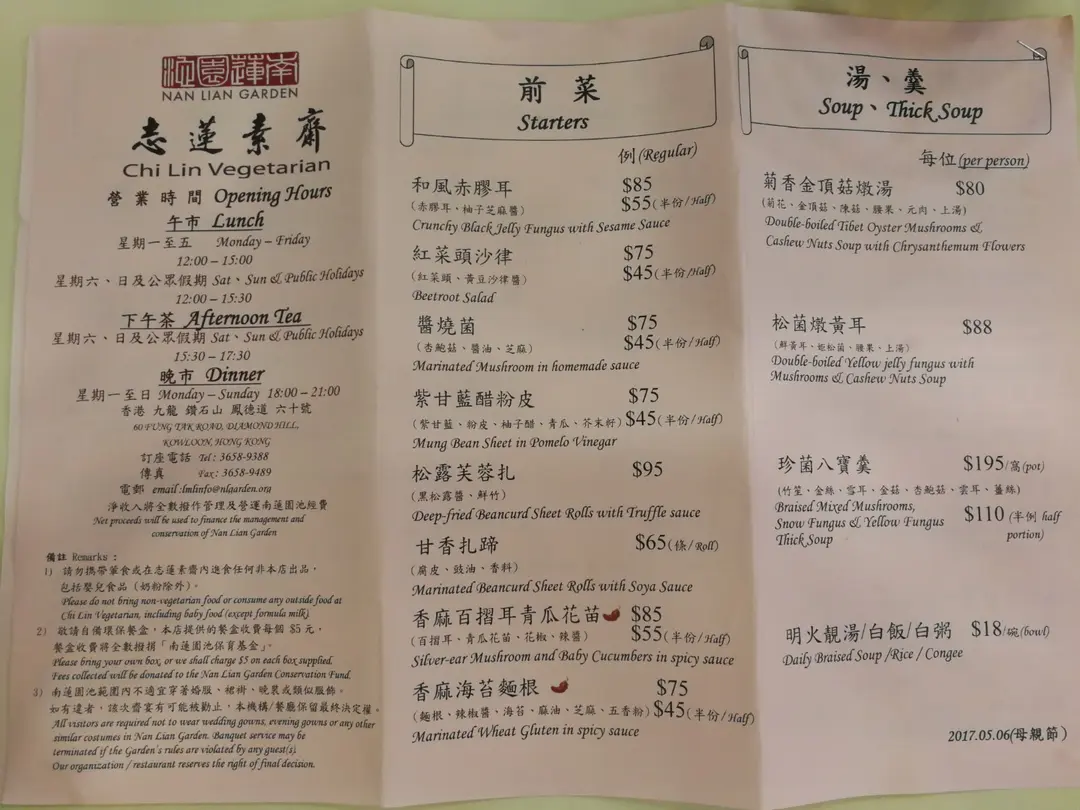 南蓮園池
NAN LIAN GARDEN
志蓮素齋
Chi Lin Vegetarian
營業時間 Opening Hours
午市 Lunch
星期一至五 Monday – Friday
12:00 – 15:00
星期六、日及公眾假期 Sat、Sun & Public Holidays
12:00 – 15:30
下午茶 Afternoon Tea
星期六、日及公眾假期 Sat、Sun & Public Holidays
15:30 - 17:30
晚市 Dinner
星期一至日 Monday – Sunday 18:00 – 21:00
香港 九龍 鑽石山 鳳德道 六十號
60 FUNG TAK ROAD, DIAMOND HILL,
KOWLOON, HONG KONG
訂座電話 Tel : 3658-9388
傳真 Fax : 3658-9489
電郵 email :lmlinfo@nlgarden.org
淨收入將全數撥作管理及營運南蓮園池經費
Net proceeds will be used to finance the management and
conservation of Nan Lian Garden
備註 Remarks :
1) 請勿攜帶葷食或在志蓮素齋內進食任何非本店出品，
包括嬰兒食品（奶粉除外）。
Please do not bring non-vegetarian food or consume any outside food at
Chi Lin Vegetarian, including baby food (except formula milk)
2) 敬請自備環保餐盒，本店提供的餐盒收費每個 $5 元，
餐盒收費將全數撥捐「南蓮園池保育基金」。
Please bring your own box, or we shall charge $5 on each box supplied.
Fees collected will be donated to the Nan Lian Garden Conservation Fund.
3) 南蓮園池範圍內不適宜穿著婚服、裙褂、晚裝或類似服飾。
如有違者，該次齋宴有可能被勸止，本機構/餐廳保留最終決定權。
All visitors are required not to wear wedding gowns, evening gowns or any other
similar costumes in Nan Lian Garden. Banquet service may be
terminated if the Garden's rules are violated by any guest(s).
Our organization / restaurant reserves the right of final decision.
前菜
Starters
例 (Regular)
和風赤膠耳 $85
（赤膠耳、柚子芝麻醬） $55 (半份/Half)
Crunchy Black Jelly Fungus with Sesame Sauce
紅菜頭沙律 $75
（紅菜頭、黃豆沙律醬） $45 (半份/Half)
Beetroot Salad
醬燒菌 $75
（杏鮑菇、醬油、芝麻） $45 (半份/Half)
Marinated Mushroom in homemade sauce
紫甘藍醋粉皮 $75
（紫甘藍、粉皮、柚子醋、青瓜、芥末籽） $45 (半份/Half)
Mung Bean Sheet in Pomelo Vinegar
松露芙蓉扎 $95
（黑松露醬、鮮竹）
Deep-fried Beancurd Sheet Rolls with Truffle sauce
甘香扎蹄 $65 (條/Roll)
（腐皮、豉油、香料）
Marinated Beancurd Sheet Rolls with Soya Sauce
香麻百摺耳青瓜花苗 $85
（百摺耳、青瓜花苗、花椒、辣醬） $55 (半份/Half)
Silver-ear Mushroom and Baby Cucumbers in spicy sauce
香麻海苔麵根 $75
（麵根、辣椒醬、海苔、麻油、芝麻、五香粉） $45 (半份/Half)
Marinated Wheat Gluten in spicy sauce
湯、羹
Soup、Thick Soup
每位 (per person)
菊香金頂菇燉湯 $80
（菊花、金頂菇、陳菇、腰果、元肉、上湯）
Double-boiled Tibet Oyster Mushrooms &
Cashew Nuts Soup with Chrysanthemum Flowers
松菌燉黃耳 $88
（鮮黃耳、姬松菌、腰果、上湯）
Double-boiled Yellow jelly fungus with
Mushrooms & Cashew Nuts Soup
珍菌八寶羹 $195/窩 (pot)
（竹笙、金絲、雪耳、金菇、杏鮑菇、雲耳、薑絲）
Braised Mixed Mushrooms, $110 (半例 half
Snow Fungus & Yellow Fungus portion)
Thick Soup
明火靚湯/白飯/白粥 $18/碗(bowl)
Daily Braised Soup /Rice / Congee
2017.05.06(母親節)